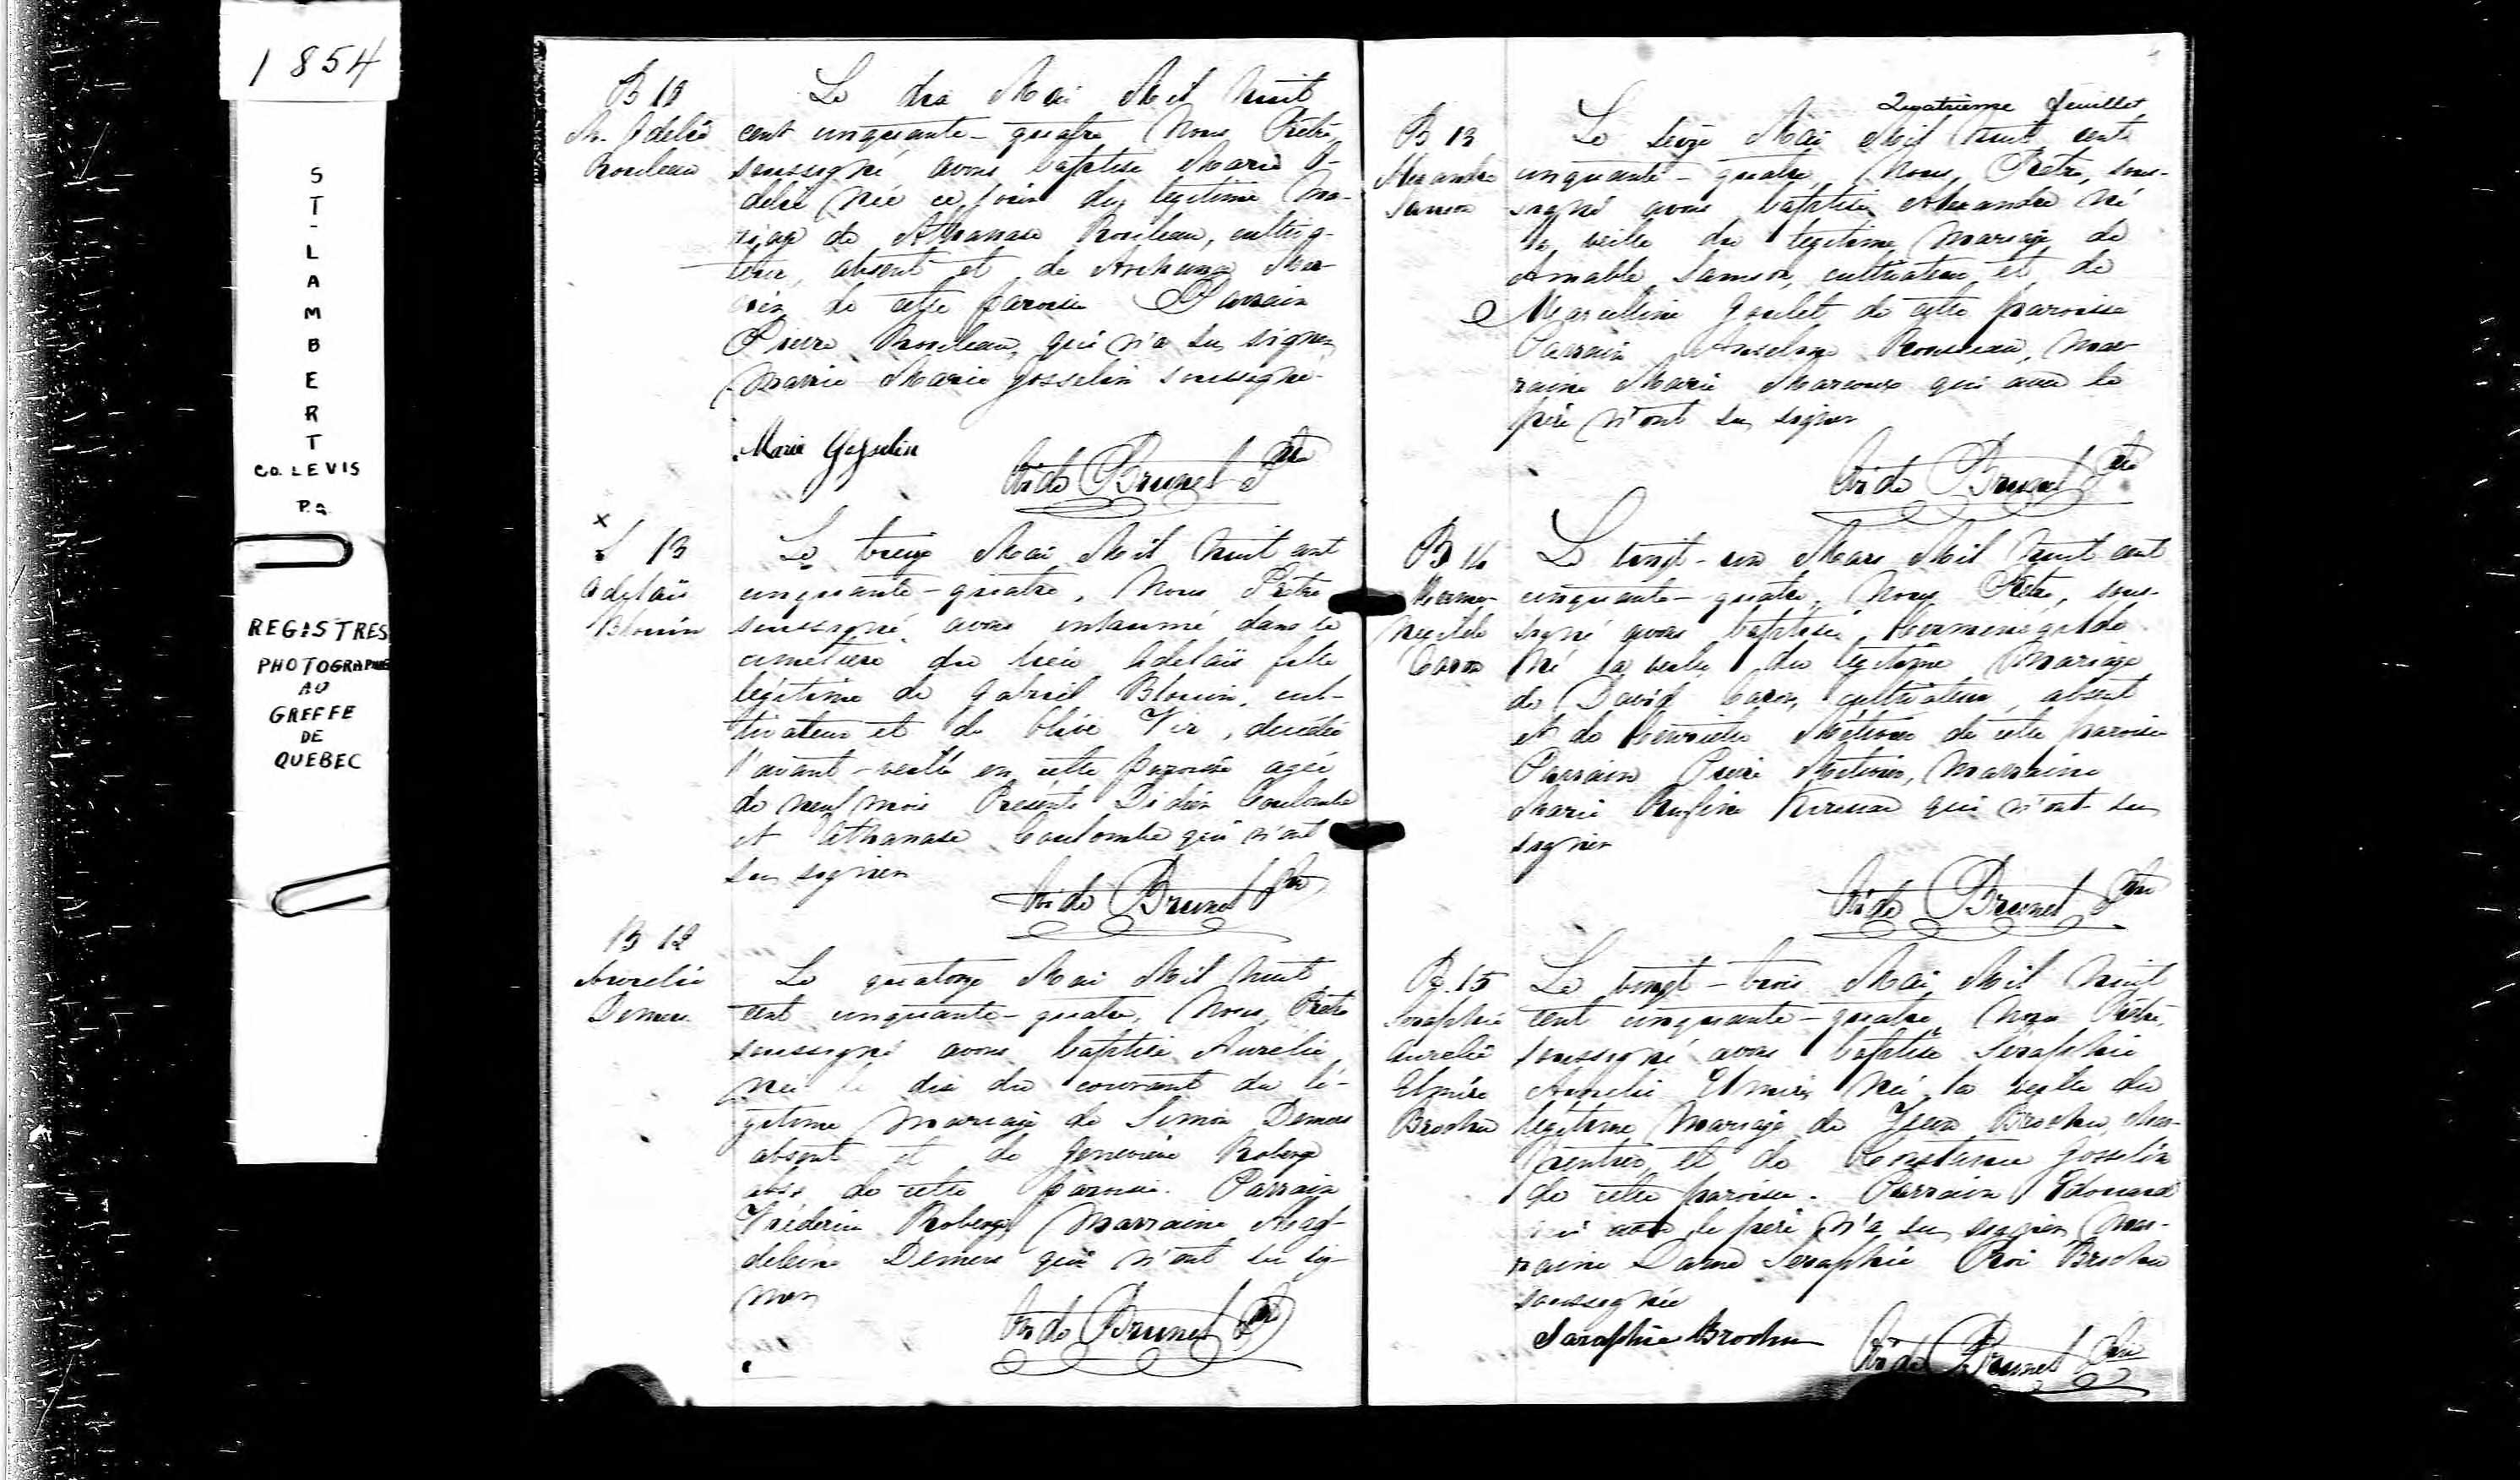 1854
ST-LAMBERT
CO. LEVIS
P.Q
REGISTRES
PHOTOGRAPHIÉS
AU
GREFFE
DE
QUEBEC
B 12
M. Odelie
Rouleau
Le dix Mai Mil huit
cent cinquante-quatre Nous, Prêtre
soussigné avons baptisé Marie O-
delie née ce jour du légitime ma-
riage de Athanase Rouleau, cultiva-
teur, absent et de
de cette paroisse Parrain
Pierre Rouleau, qui n'a su signer
Marraine Marie Gosselin soussignée
Marie Gosselin
Brunet Ptre
S 13
Adelaïs
Blouin
Le treize Mai Mil huit cent
cinquante-quatre, Nous Prêtre
soussigné avons inhumé dans le
cimetière du lieu Adelaïs fille
légitime de Gabriel Blouin, cul-
tivateur et de Olive Vir, décédée
l'avant-veille en cette paroisse agée
de neuf mois Présents Coulombe
et Athanase Coulombe qui n'ont
su signer
Brunet Ptre
B 12
Aurelie
Demers
Le quatorze Mai Mil huit
cent cinquante-quatre, Nous, Prêtre
soussigné avons baptisé Aurélie
née le dix du courant du lé-
gitime mariage de Simon Demers
absent et de Geneviève Roberge
abs. de cette paroisse. Parrain
Fréderic Roberge, Marraine Mag-
deleine Demers qui n'ont su sig-
ner
Brunet Ptre
Quatrième feuillet
B 13
Alexandre
Samson
Le seize Mai Mil huit cent
cinquante-quatre, Nous, Prêtre, sous-
signé avons baptisé Alexandre né
la veille du légitime mariage de
Amable Samson, cultivateur et de
Marcelline Goulet de cette paroisse
Parrain Anselme Rousseau, mar-
raine Marie Marcoux qui avec le
père n'ont su signer
Brunet Ptre
B 14
Hermé-
négilde
Caron
Le vingt-un Mars Mil huit cent
cinquante-quatre, Nous Prêtre, sous-
signé avons baptisé, Hermenegilde
né la veille du légitime Mariage
de David Caron, cultivateur, absent
et de Henriette Métivier de cette paroisse
Parrain Pierre Métivier, Marraine
Marie qui n'ont su
signer
Brunet Ptre
B. 15
Séraphie
Aurelie
Elmire
Brochu
Le vingt-trois Mai Mil huit
cent cinquante-quatre Nous Prêtre,
soussigné avons baptisé Seraphie
Aurelie Elmire née la veille du
légitime Mariage de Brochu, char-
pentier, et de Constance Gosselin
de cette paroisse. Parrain Edouard
qui avec le père n'a su signer Mar-
raine Dame Seraphie Roi Brochu
soussignée
Saraphie Brochu
Brunet Ptre